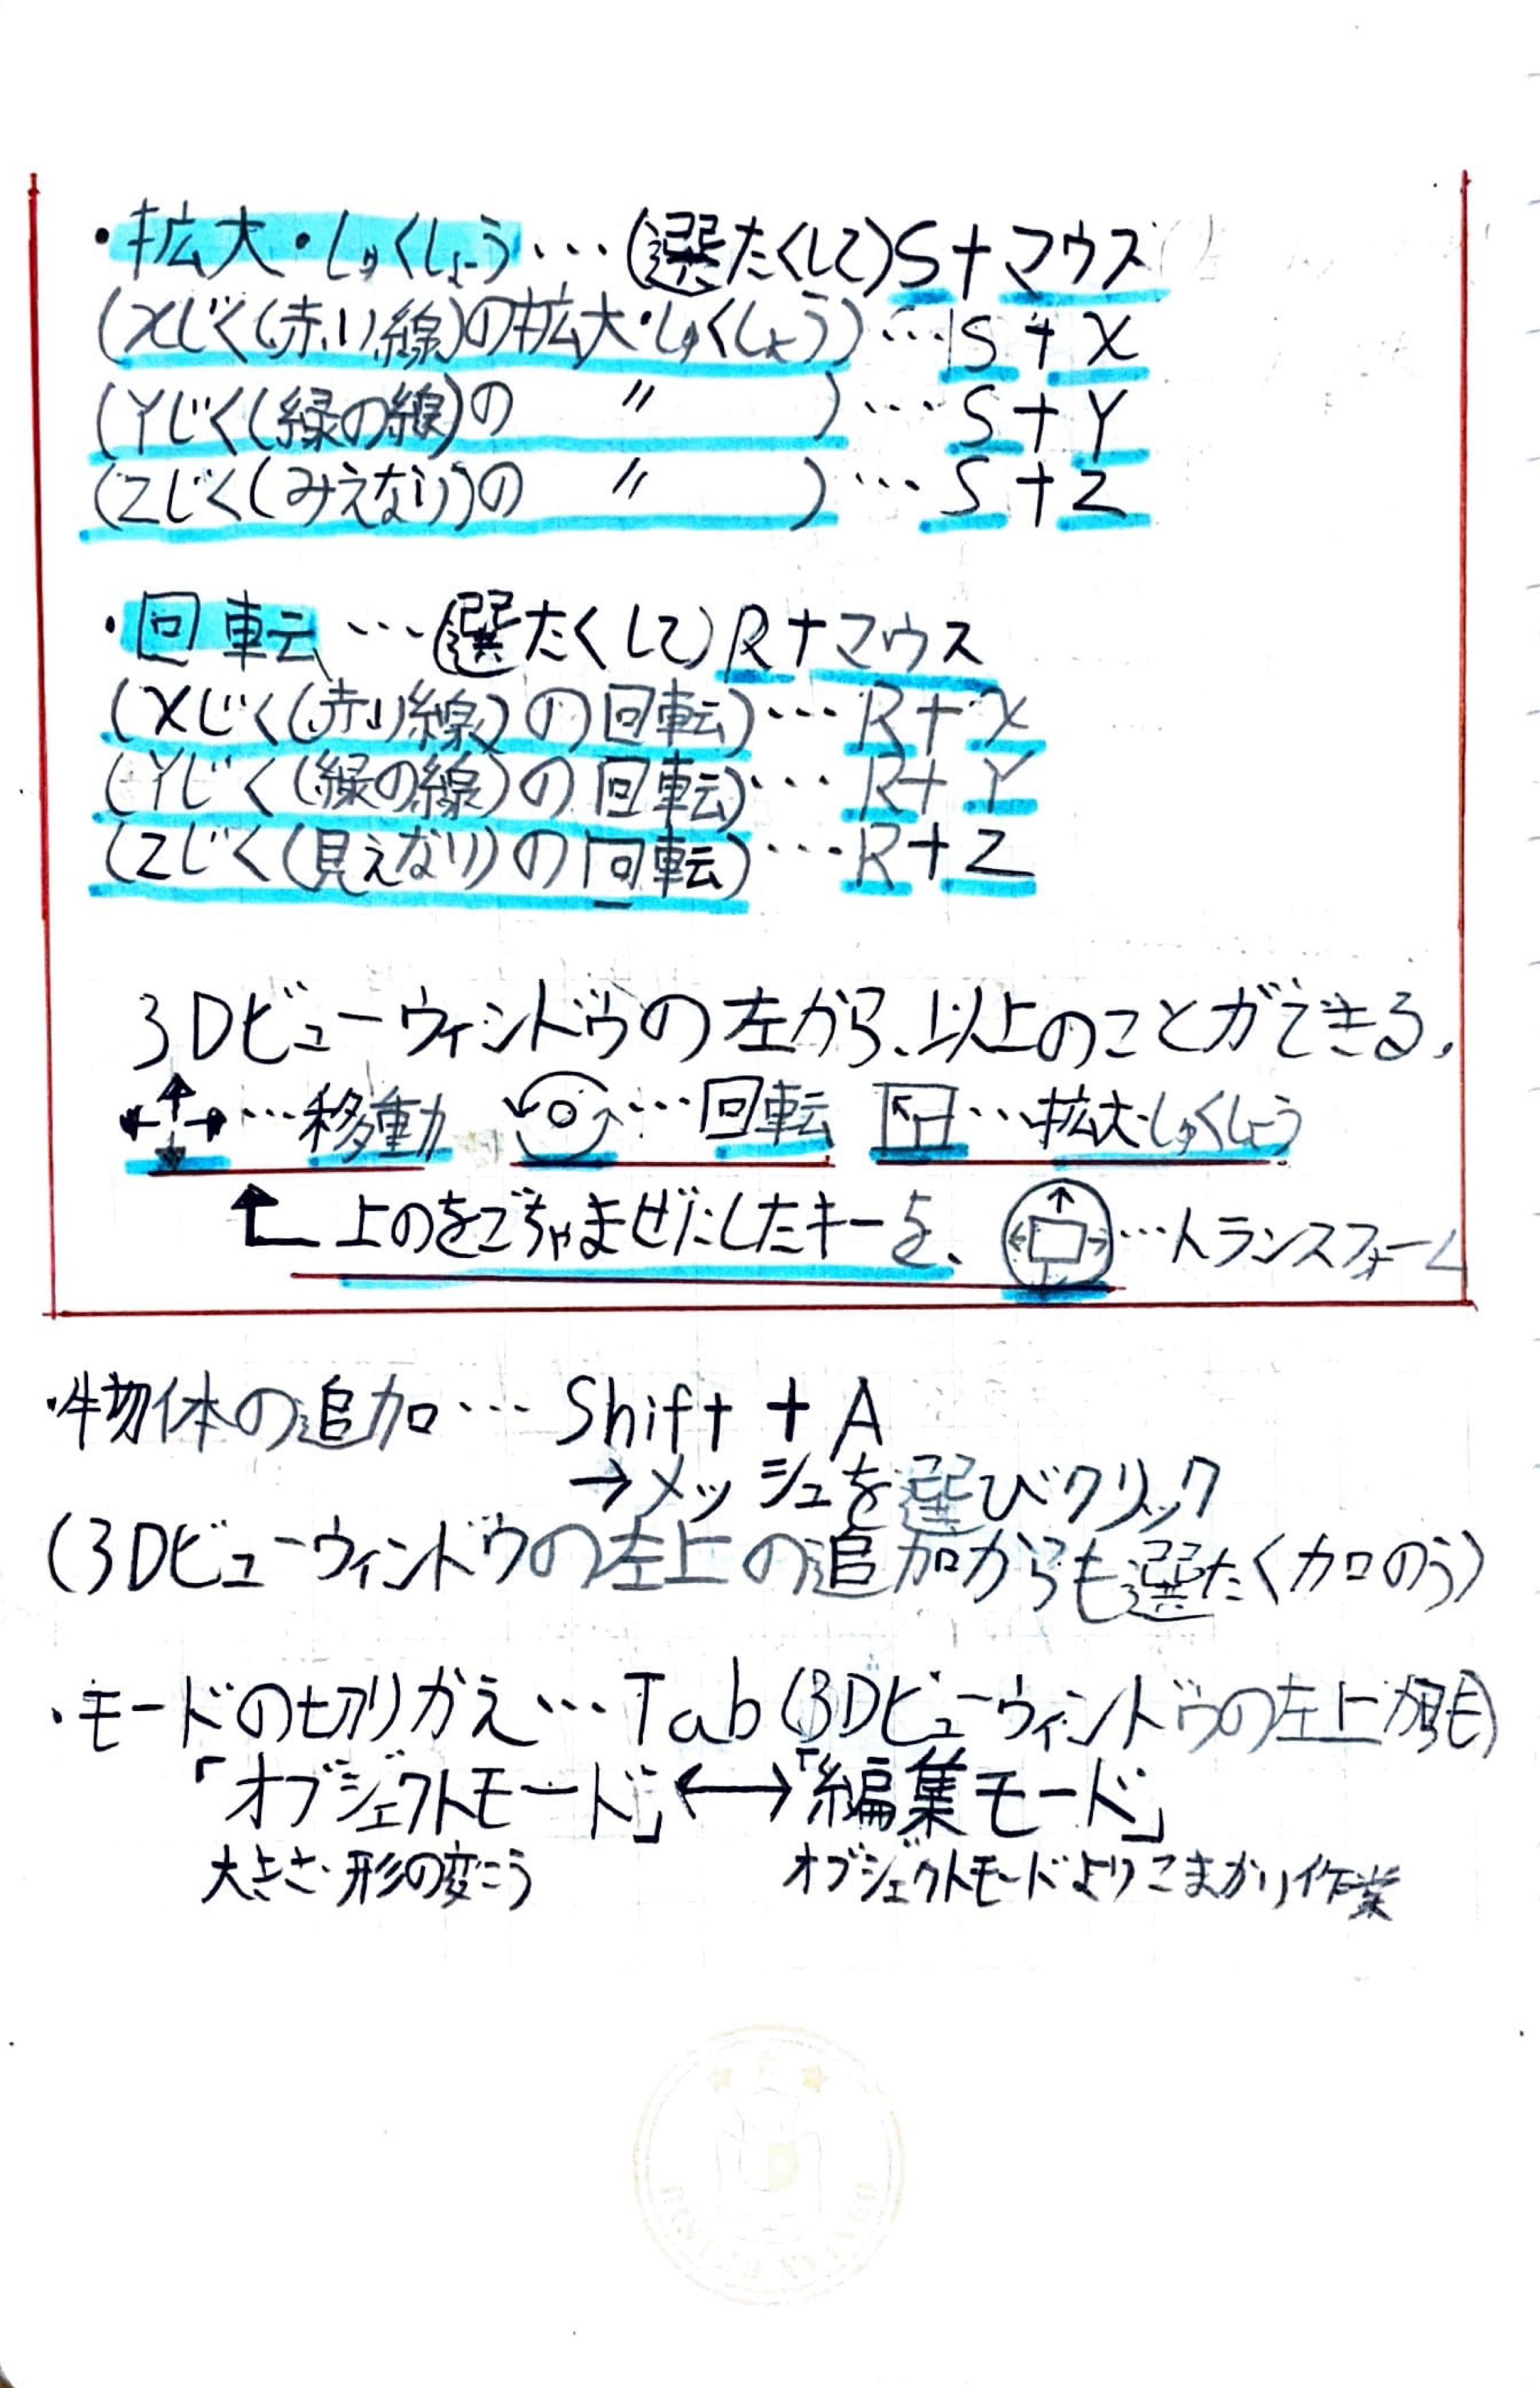 ・拡大・しゅくしょう…(選たくして)S+マウス
(Xじく(赤い線)の拡大・しゅくしょう)…S+X
(Yじく(緑の線)の 〃 )…S+Y
(Zじく(みえない)の 〃 )…S+Z
・回転…(選たくして)R+マウス
(Xじく(赤い線)の回転)…R+X
(Yじく(緑の線)の回転)…R+Y
(Zじく(見えない)の回転)…R+Z
3Dビューウィンドウの左から、以上のことができる。
…移動 …回転 …拡大・しゅくしょう
上のをごちゃまぜにしたキーを、 …トランスフォーム
・物体の追加… Shift + A
→メッシュを選びクリック
(3Dビューウィンドウの左上の追加からも選たく加のう)
・モードの切りかえ…Tab(3Dビューウィンドウの左上からも)
「オブジェクトモード」←→「編集モード」
大きさ・形の変こう オブジェクトモードよりこまかい作業